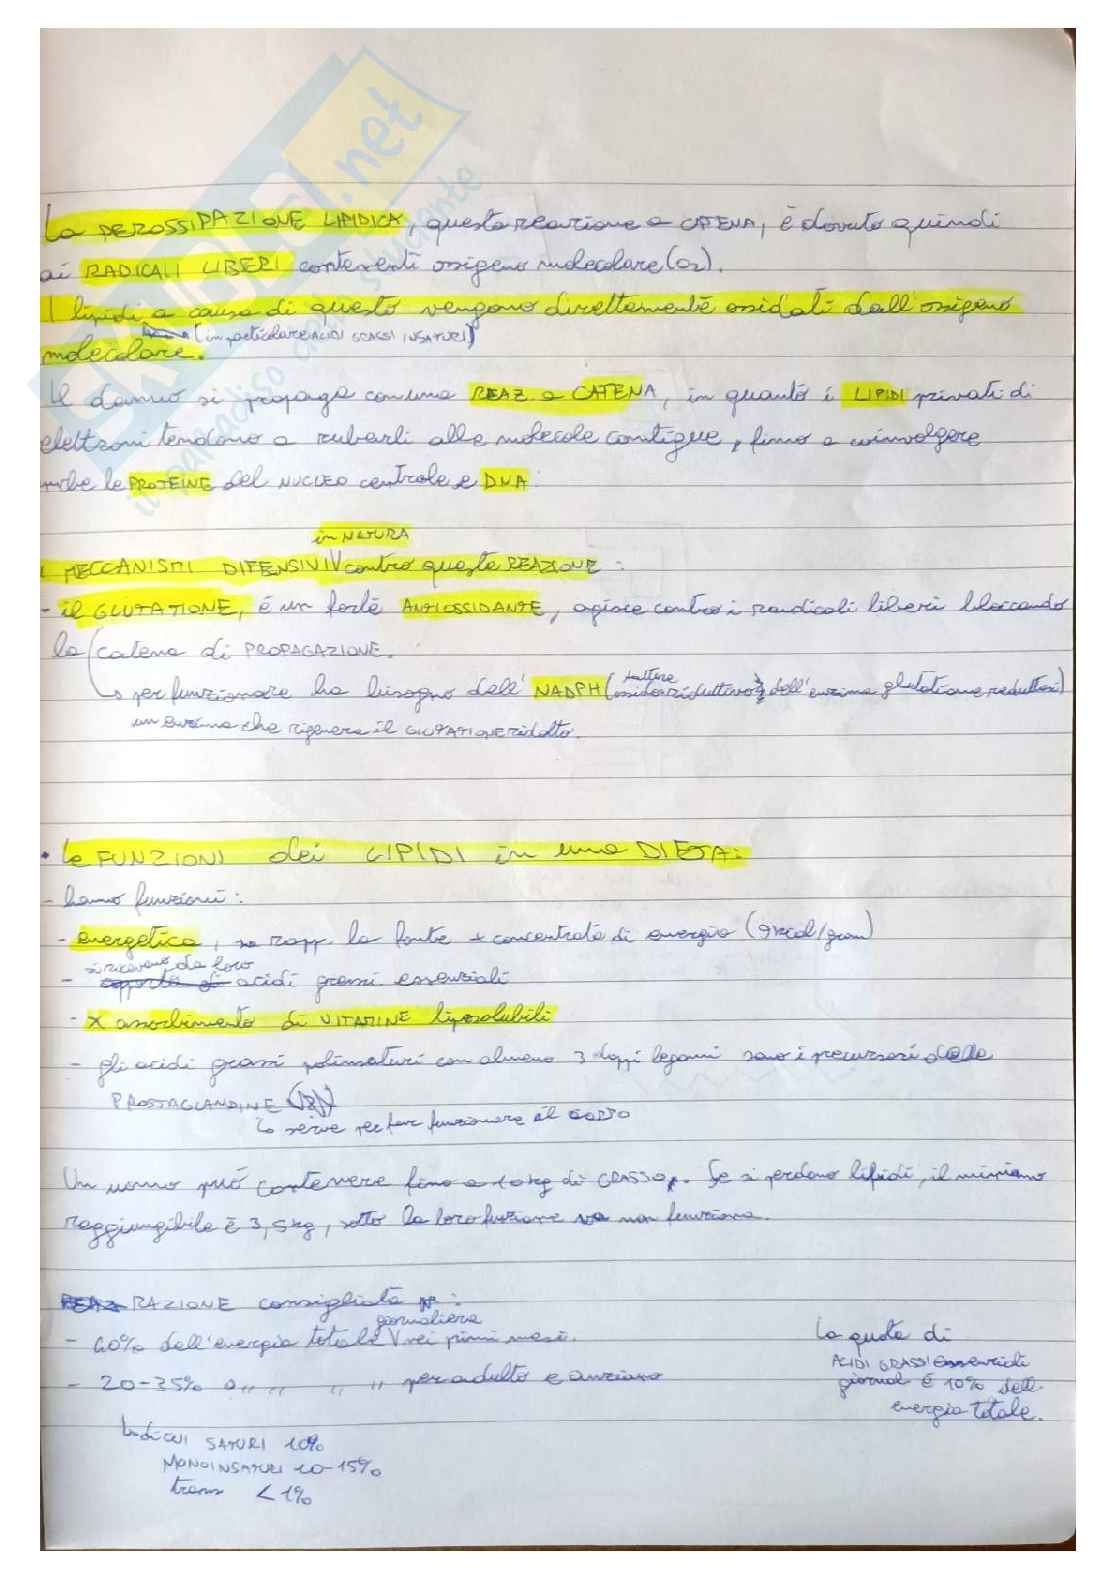 SKUOLA.net
il paradiso dello studente
La PEROSSIDAZIONE LIPIDICA, questa reazione a CATENA, è dovuta quindi
ai RADICALI LIBERI contenenti ossigeno molecolare (O2).
I lipidi a causa di questo vengono direttamente ossidati dall'ossigeno
(in particolare ACIDI GRASSI INSATURI)
molecolare.
Il danno si propaga con una REAZ. a CATENA, in quanto i LIPIDI privati di
elettroni tendono a rubarli alle molecole contigue, fino a coinvolgere
anche le PROTEINE del NUCLEO centrale e DNA.
in NATURA
I MECCANISMI DIFENSIVI V contro questa REAZIONE :
- il GLUTATIONE, è un forte ANTIOSSIDANTE, agisce contro i raudicali liberi bloccando
la catena di PROPAGAZIONE.
↳ per funzionare ha bisogno dell' NADPH (fattore ossidoriduttivo dell'enzima glutatione reduttasi)
un enzima che rigenera il GLUTATIONE ridotto.
• Le FUNZIONI dei LIPIDI in una DIETA:
- hanno funzioni :
- energetica, rapp. la fonte + concentrata di energia (9 kcal/gram)
si ricevono da loro
- apporto di acidi grassi essenziali
- x assorbimento di VITAMINE liposolubili
- gli acidi grassi polinsaturi con almeno 3 doppi legami sono i precursori delle
PROSTAGLANDINE
↳ serve per far funzionare il corpo
Un uomo può contenere fino a 10 kg di GRASSO. Se si perdono lipidi, il minimo
raggiungibile è 3,5 kg, sotto la loro funzione va non funziona.
REAZ RAZIONE consigliata :
giornaliera
- 40% dell'energia totale V nei primi mesi.
- 20-35% " " " " per adulto e anziano
La quota di
ACIDI GRASSI essenziali
giornal è 10% dell'
energia totale.
↳ di cui SATURI 10%
MONOINSATURI 10-15%
trans < 1%